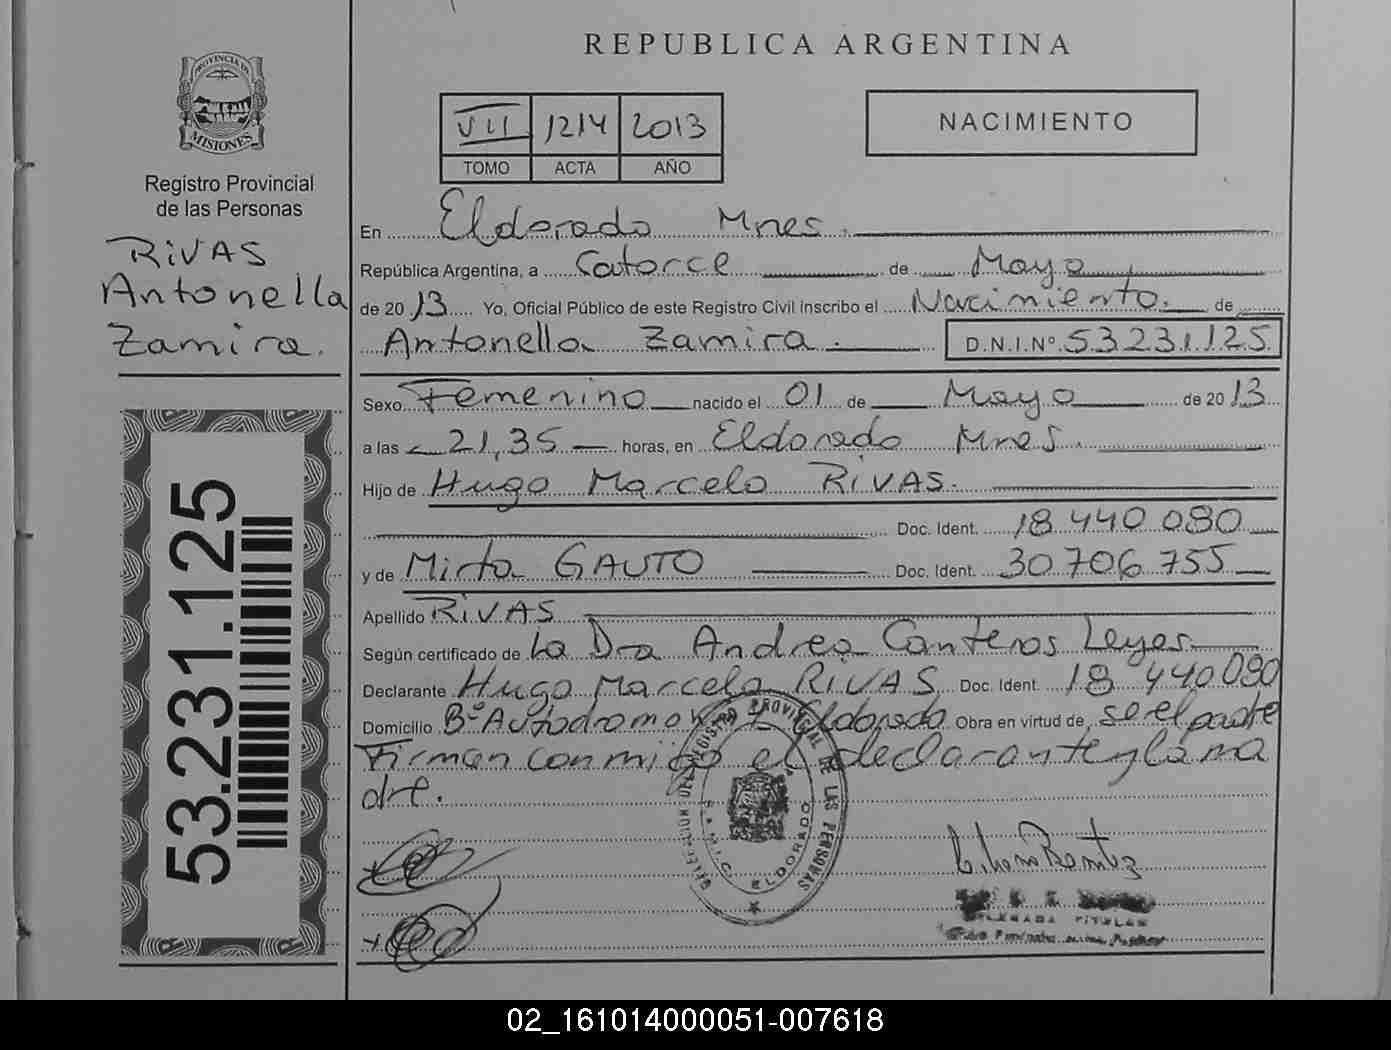 REPUBLICA ARGENTINA
PROVINCIA DE
MISIONES
Registro Provincial
de las Personas
RIVAS
Antonella
Zamira.
53.231.125
VII 1214 2013
TOMO ACTA AÑO
NACIMIENTO
En Eldorado Mnes.
República Argentina, a Catorce de Mayo
de 2013 Yo, Oficial Público de este Registro Civil inscribo el Nacimiento. de
Antonella Zamira. D.N.I.Nº 53231125
Sexo Femenino nacido el 01 de Mayo de 2013
a las 21,35 horas, en Eldorado Mnes.
Hijo de Hugo Marcelo RIVAS.
Doc. Ident. 18 440 080
y de Mirta GAUTO Doc. Ident. 30 706 755
Apellido RIVAS
Según certificado de La Dra Andrea Canteros Leyes.
Declarante Hugo Marcelo RIVAS Doc. Ident. 18 440 080
Domicilio Bº Autodromo Eldorado Obra en virtud de ser el padre
Firman conmigo el declarante y la ma
dre.
REGISTRO PROVINCIAL DE LAS PERSONAS
ELDORADO
TITULAR
02_161014000051-007618